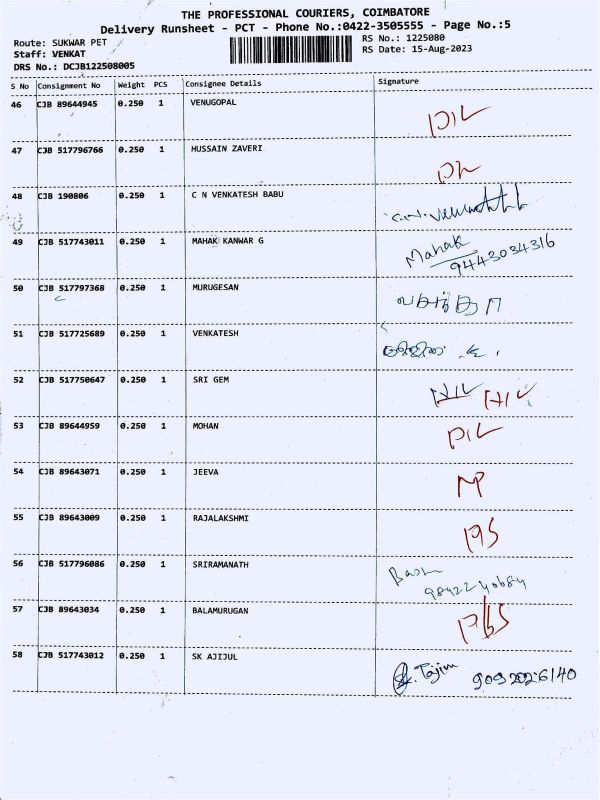 THE PROFESSIONAL COURIERS, COIMBATORE
Delivery Runsheet - PCT - Phone No.:0422-3505555 - Page No.:5
Route: SUKWAR PET
Staff: VENKAT
DRS No.: DCJB122508005
RS No.: 1225080
RS Date: 15-Aug-2023
S No Consignment No Weight PCS Consignee Details Signature
46 CJB 89644945 0.250 1 VENUGOPAL
47 CJB 517796766 0.250 1 HUSSAIN ZAVERI
48 CJB 190806 0.250 1 C N VENKATESH BABU
49 CJB 517743011 0.250 1 MAHAK KANWAR G Mahak
9443034316
50 CJB 517797368 0.250 1 MURUGESAN
51 CJB 517725689 0.250 1 VENKATESH
52 CJB 517750647 0.250 1 SRI GEM
53 CJB 89644959 0.250 1 MOHAN
54 CJB 89643071 0.250 1 JEEVA
55 CJB 89643009 0.250 1 RAJALAKSHMI
56 CJB 517796086 0.250 1 SRIRAMANATH
57 CJB 89643034 0.250 1 BALAMURUGAN
58 CJB 517743012 0.250 1 SK AJIJUL